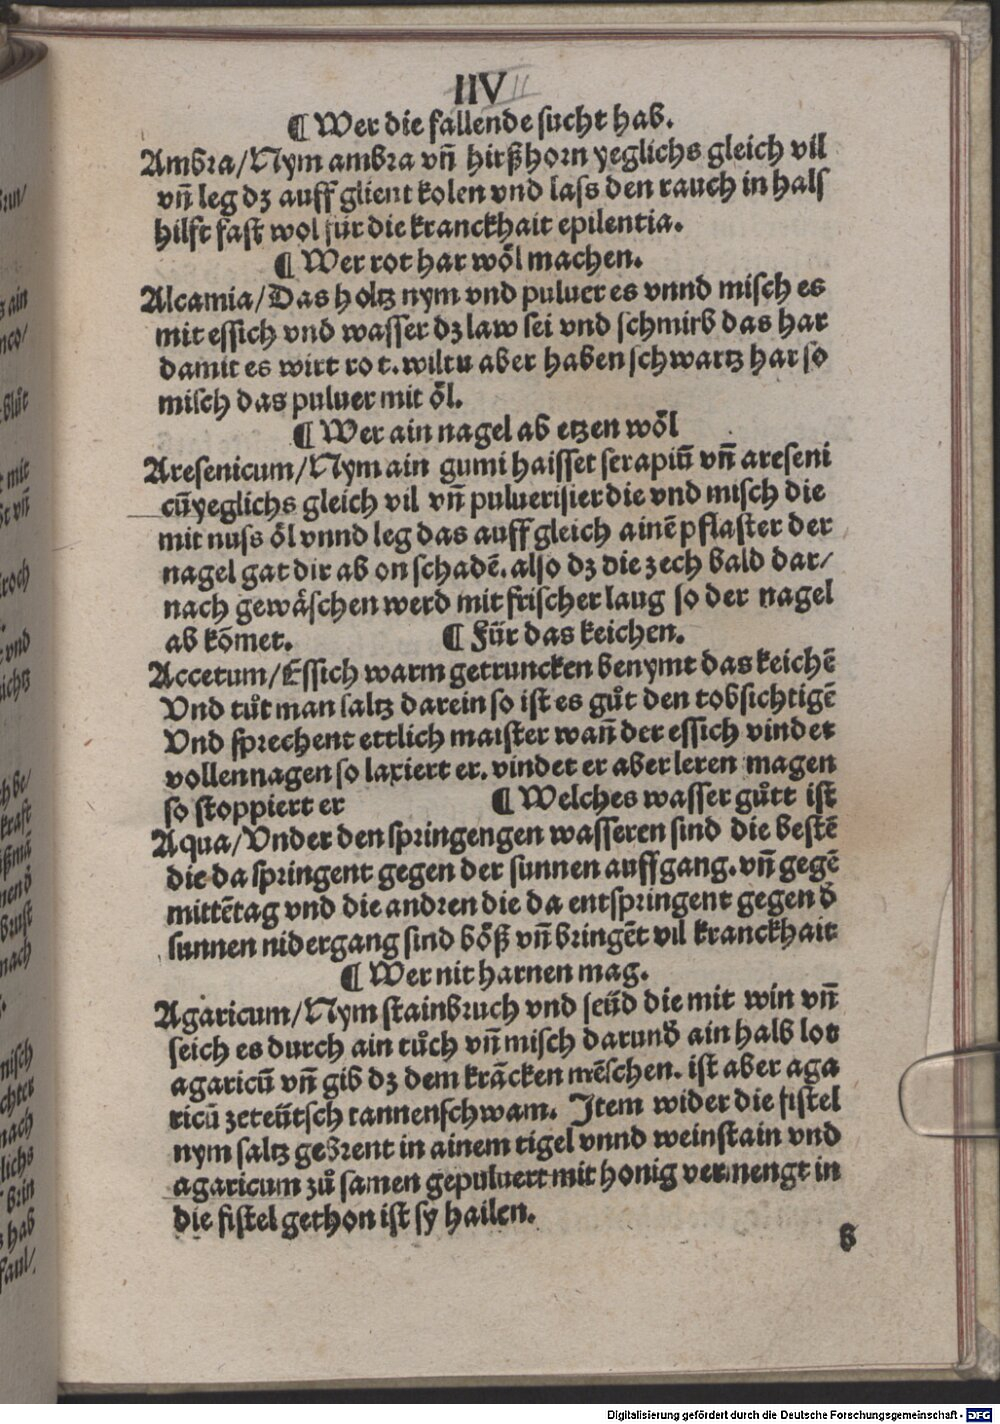 IIV II
¶ Wer die fallende sucht hab.
Ambra/Nym ambra vñ hirßhorn yeglichs gleich vil
vñ leg dz auff glient kolen vnd lass den rauch in hals
hilft fast wol für die kranckhait epilentia.
¶ Wer rot har wöl machen.
Alcamia/Das holtz nym vnd puluer es vnnd misch es
mit essich vnd wasser dz law sei vnd schmirb das har
damit es wirt rot. wiltu aber haben schwartz har so
misch das puluer mit öl.
¶ Wer ain nagel ab etzen wöl
Aresenicum/Nym ain gumi haisset serapiū vñ areseni
cū yeglichs gleich vil vñ puluerisier die vnd misch die
mit nuss öl vnnd leg das auff gleich ainē pflaster der
nagel gat dir ab on schadē. also dz die zech bald dar/
nach gewäschen werd mit frischer laug so der nagel
ab kōmet. ¶ Für das keichen.
Accetum/Essich warm getruncken benymt das keichē
Vnd tůt man saltz darein so ist es gůt den tobsichtigē
Vnd sprechent ettlich maister wañ der essich vindet
vollen nagen so laxiert er. vindet er aber leren magen
so stoppiert er ¶ Welches wasser gůtt ist
Aqua/Vnder den springengen wasseren sind die bestē
die da springent gegen der sunnen auffgang. vñ gegē
mittētag vnd die andren die da entspringent gegen d̄
sunnen nidergang sind böß vñ bringēt vil kranckhait
¶ Wer nit harnen mag.
Agaricum/Nym stainbruch vnd seüd die mit win vñ
seich es durch ain tůch vñ misch darund̄ ain halb lot
agaricū vñ gib dz dem krācken mēschen. ist aber aga
ricū zeteütsch tannenschwam. Item wider die fistel
nym saltz gebrent in ainem tigel vnnd weinstain vnd
agaricum zů samen gepuluert mit honig vermengt in
die fistel gethon ist sy hailen.
b
Digitalisierung gefördert durch die Deutsche Forschungsgemeinschaft - DFG